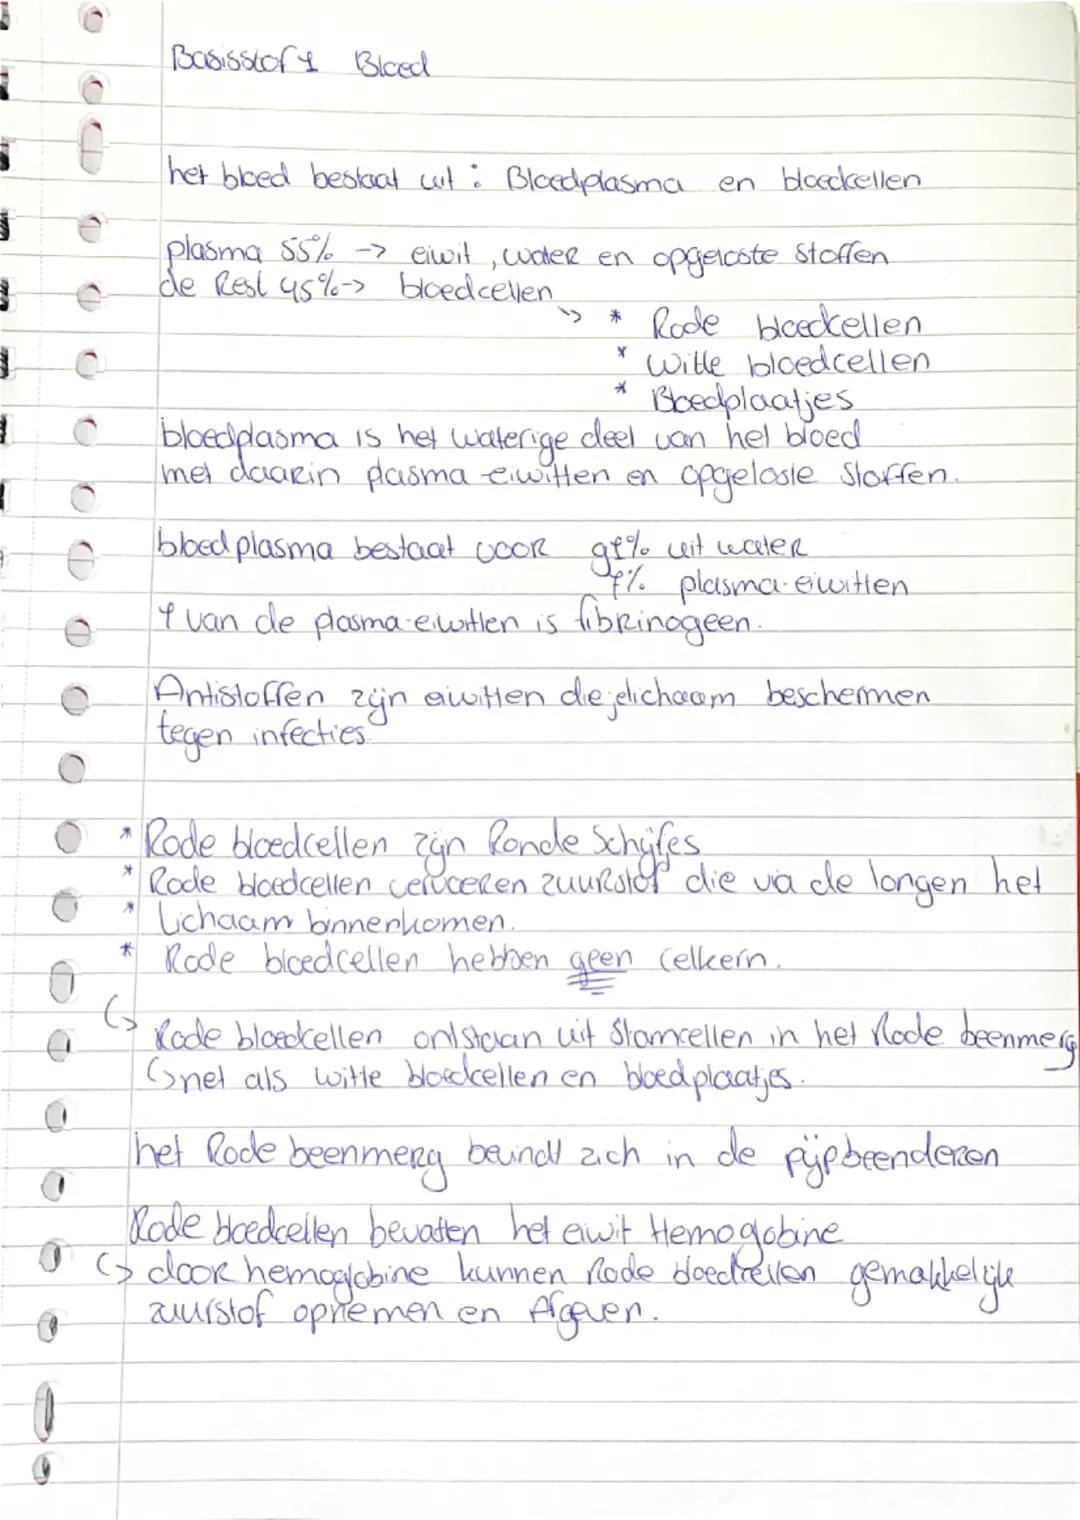 Basisstof 1 Bloed
het bloed bestaat uit : Bloedplasma en bloedcellen
plasma 55% -> eiwit, water en opgeloste stoffen
de Rest 45% -> bloedcellen
-> * Rode bloedcellen
* Witte bloedcellen
* Bloedplaatjes
bloedplasma is het waterige deel van het bloed
met daarin plasma-eiwitten en opgeloste stoffen.
bloedplasma bestaat voor 91% uit water
7% plasma-eiwitten
1 van de plasma-eiwitten is fibrinogeen.
Antistoffen zijn eiwitten die je lichaam beschermen
tegen infecties
* Rode bloedcellen zijn Ronde Schijfes
* Rode bloedcellen vervoeren zuurstof die via de longen het
* lichaam binnenkomen.
* Rode bloedcellen hebben geen celkern.
↳ Rode bloedcellen ontstaan uit stamcellen in het Rode beenmerg
↳ net als witte bloedcellen en bloedplaatjes.
het Rode beenmerg bevindt zich in de pijpbeenderen
Rode bloedcellen bevatten het eiwit Hemogobine
↳ door hemoglobine kunnen Rode bloedcellen gemakkelijk
zuurstof opnemen en Afgeven.